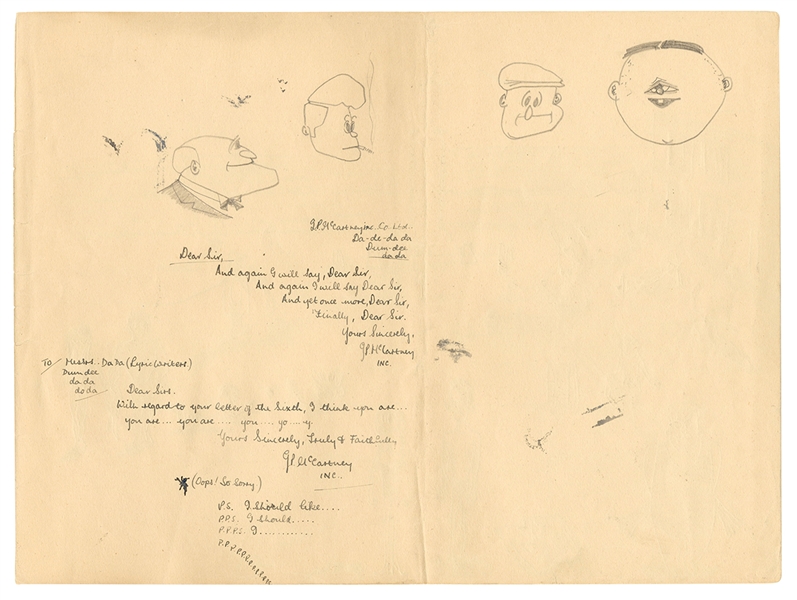 J.P. McCartney inc. Co. Ltd..
Da-de-da da
Dum-dee
dada
Dear Sir,
And again I will say, Dear Sir,
And again I will say Dear Sir,
And yet once more, Dear Sir,
Finally, Dear Sir.
Yours Sincerely,
J.P. McCartney
INC.
TO Messrs. Da Da (Lyric Writers)
Dum dee
da da
do da
Dear Sirs.
With regard to your letter of the Sixth, I think you are...
you are... you are .... you .... yo .... y.
Yours Sincerely, Truly & Faithfully
J.P. McCartney
INC..
(Oops! So sorry)
P.S. I should like....
P.P.S. I should.....
P.P.P.S. I...........